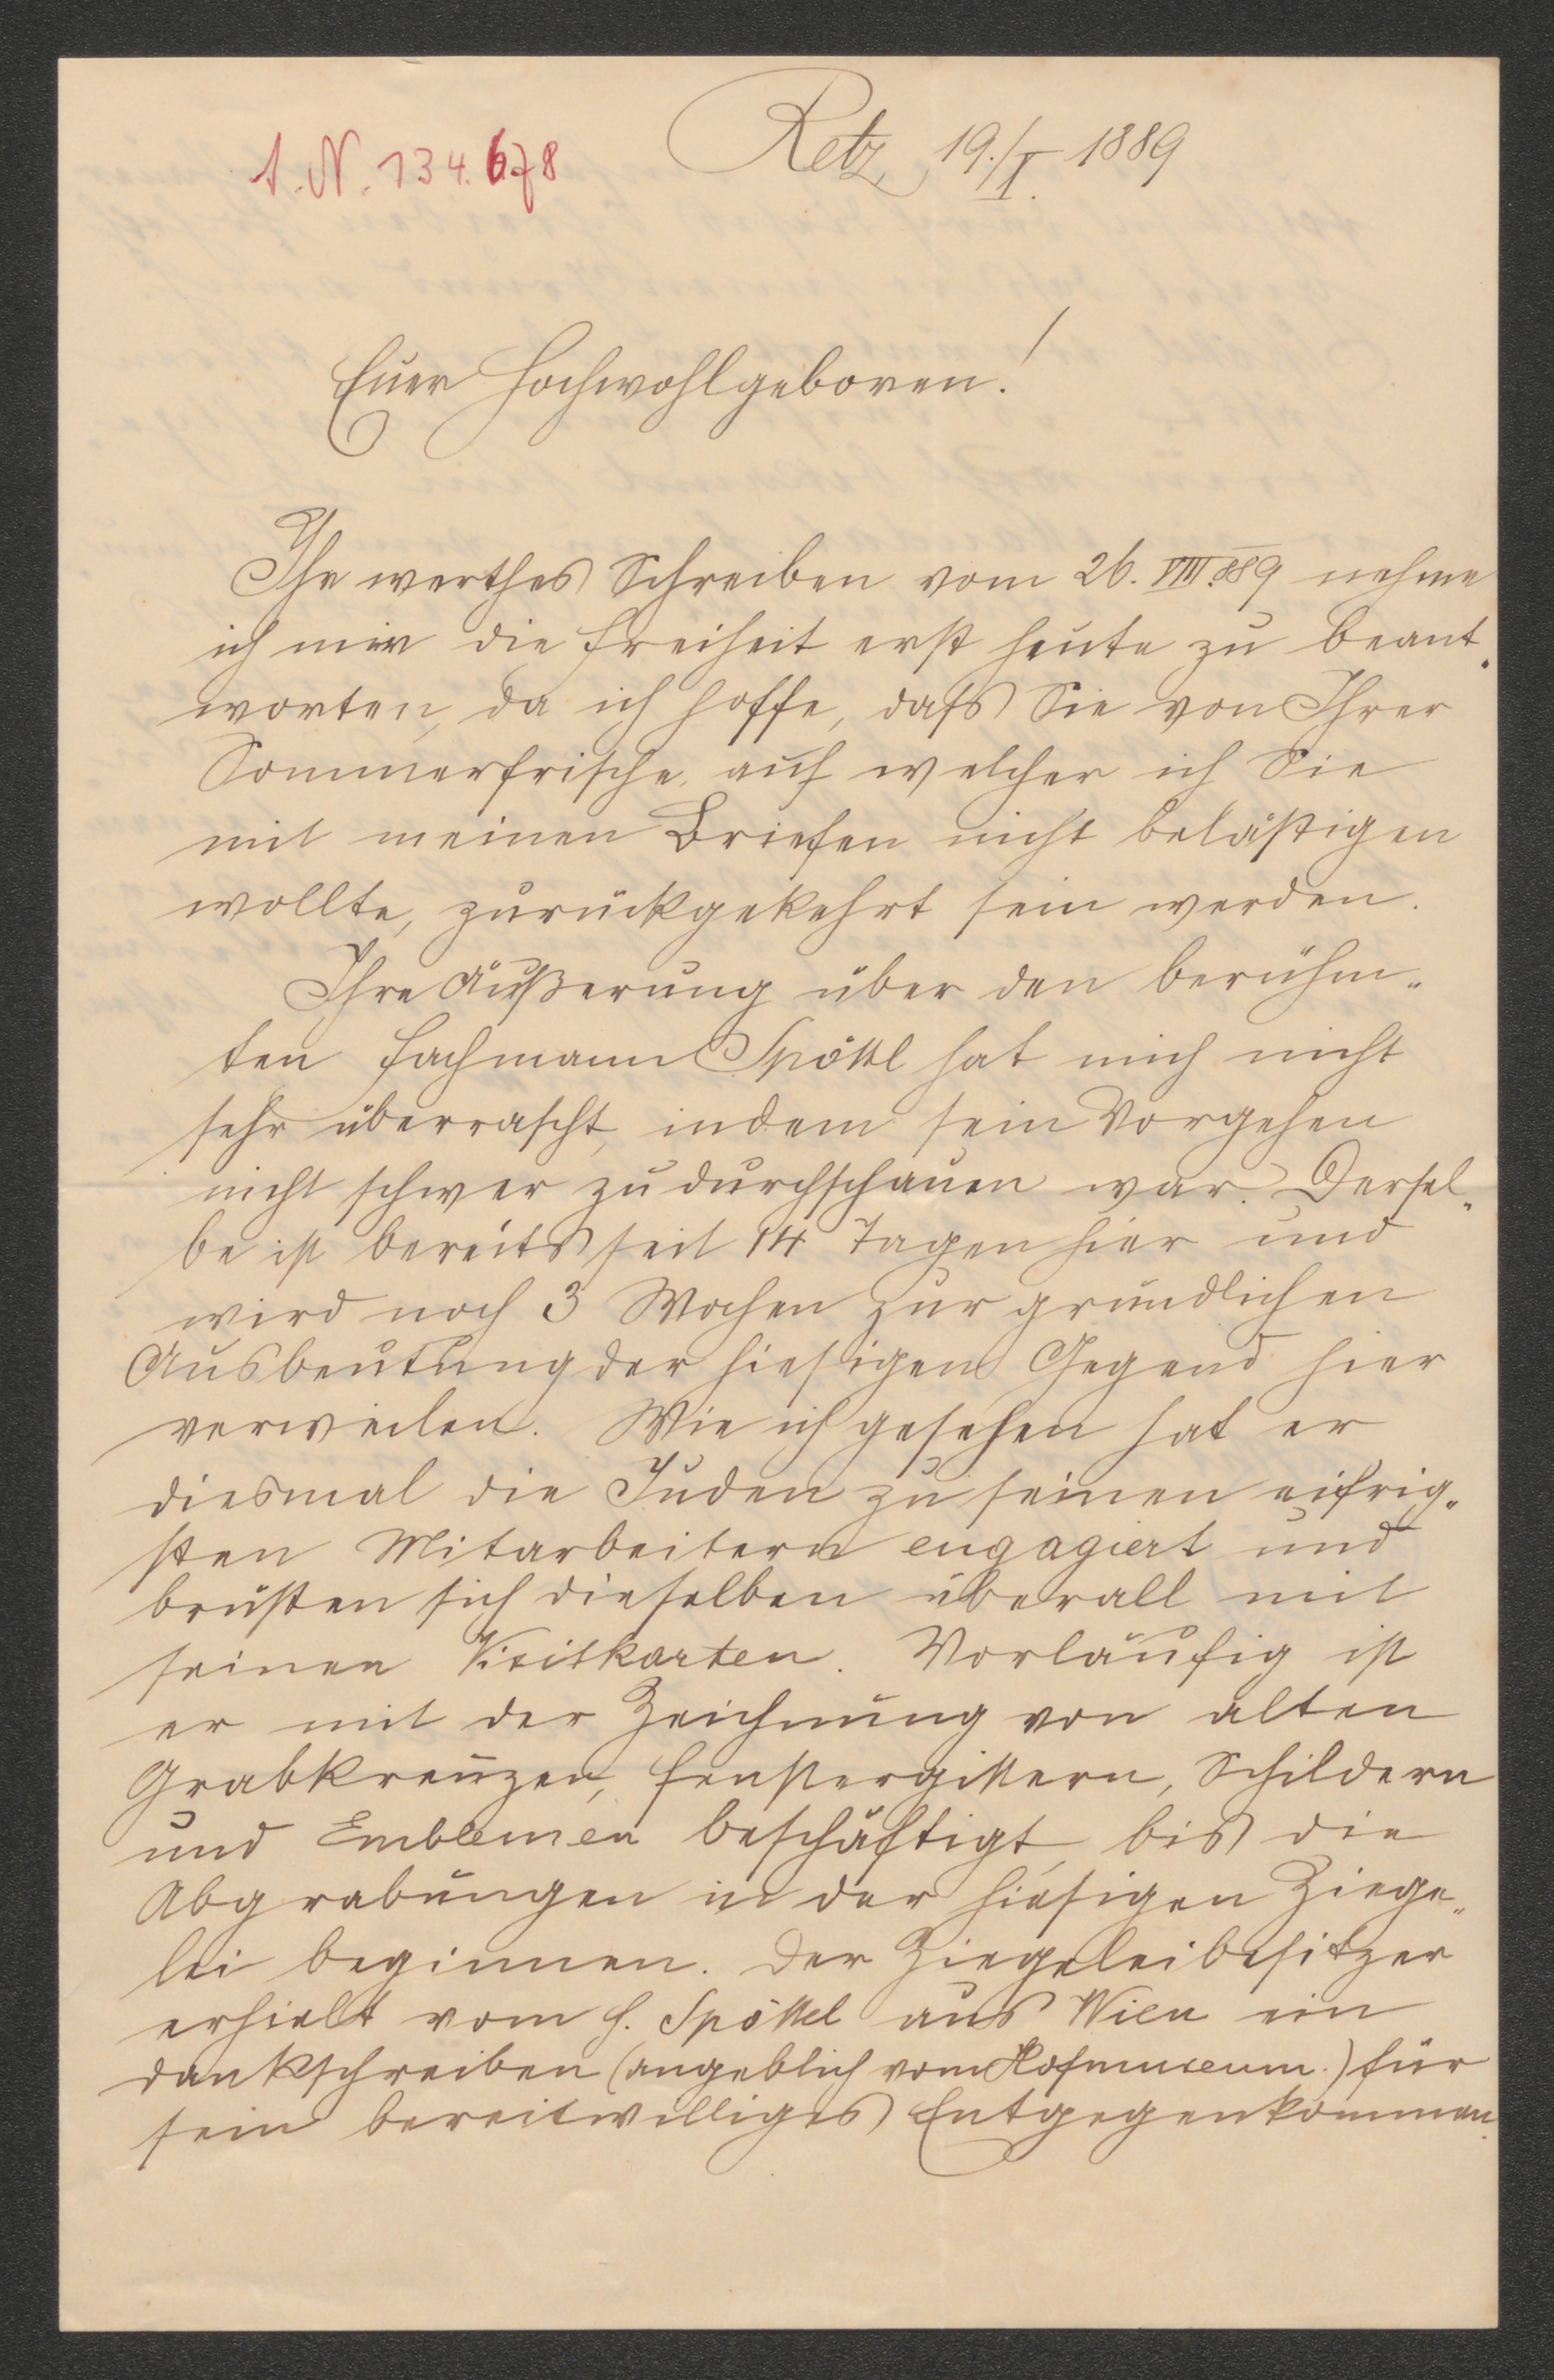 A.N. 134.678
Retz, 19./I. 1889
Euer Hochwohlgeboren!
Ihr werthes Schreiben vom 26. VIII. 889 nehme
ich mir die Freiheit erst heute zu beant-
worten, da ich hoffe, dass Sie von Ihrer
Sommerfrische, auf welcher ich Sie
mit meinen Briefen nicht belästigen
wollte, zurückgekehrt sein werden.
Ihre Äußerung über den berühm-
ten Fachmann Spöttl hat mich nicht
sehr überrascht, indem sein Vorgehen
nicht schwer zu durchschauen war. Dersel-
be ist bereits seit 14 Tagen hier und
wird noch 3 Wochen zur gründlichen
Ausbeutung der hiesigen Gegend hier
verweilen. Wie ich gesehen hat er
diesmal die Juden zu seinen eifrig-
sten Mitarbeitern engagiert und
brüsten sich dieselben überall mit
seinen Visitkarten. Vorläufig ist
er mit der Zeichnung von alten
Grabkreuzen, Fenstergittern, Schildern
und Emblemen beschäftigt, bis die
Abgrabungen in der hiesigen Ziege-
lei beginnen. Der Ziegeleibesitzer
erhielt vom H. Spöttel aus Wien ein
Dankschreiben (angeblich vom Hofmuseum.) für
sein bereitwilliges Entgegenkommen.